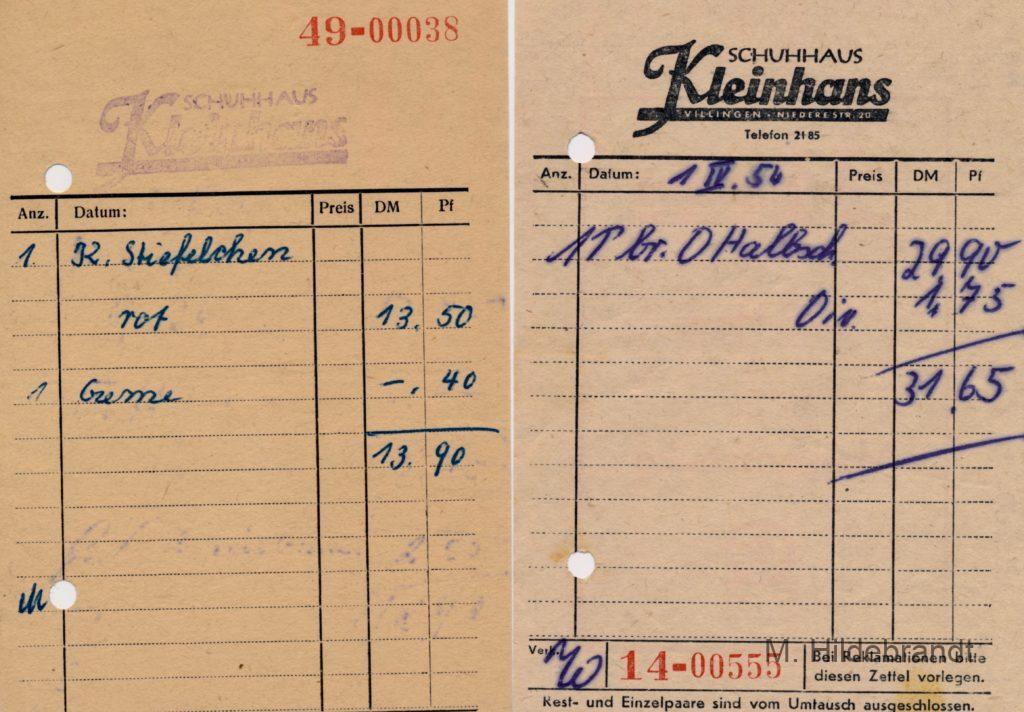 49-00038
SCHUHHAUS
Kleinhans
Anz. Datum: Preis DM Pf
1 K. Stiefelchen
rot 13. 50
1 Creme -. 40
13. 90
SCHUHHAUS
Kleinhans
VILLINGEN · NIEDERE STR. 20
Telefon 2185
Anz. Datum: 1 IV. 54 Preis DM Pf
1 P br. D Halbsch. 29 90
1, 75
31. 65
Verk.
14-00555
M. Hildebrandt.
Bei Reklamationen bitte
diesen Zettel vorlegen.
Rest- und Einzelpaare sind vom Umtausch ausgeschlossen.